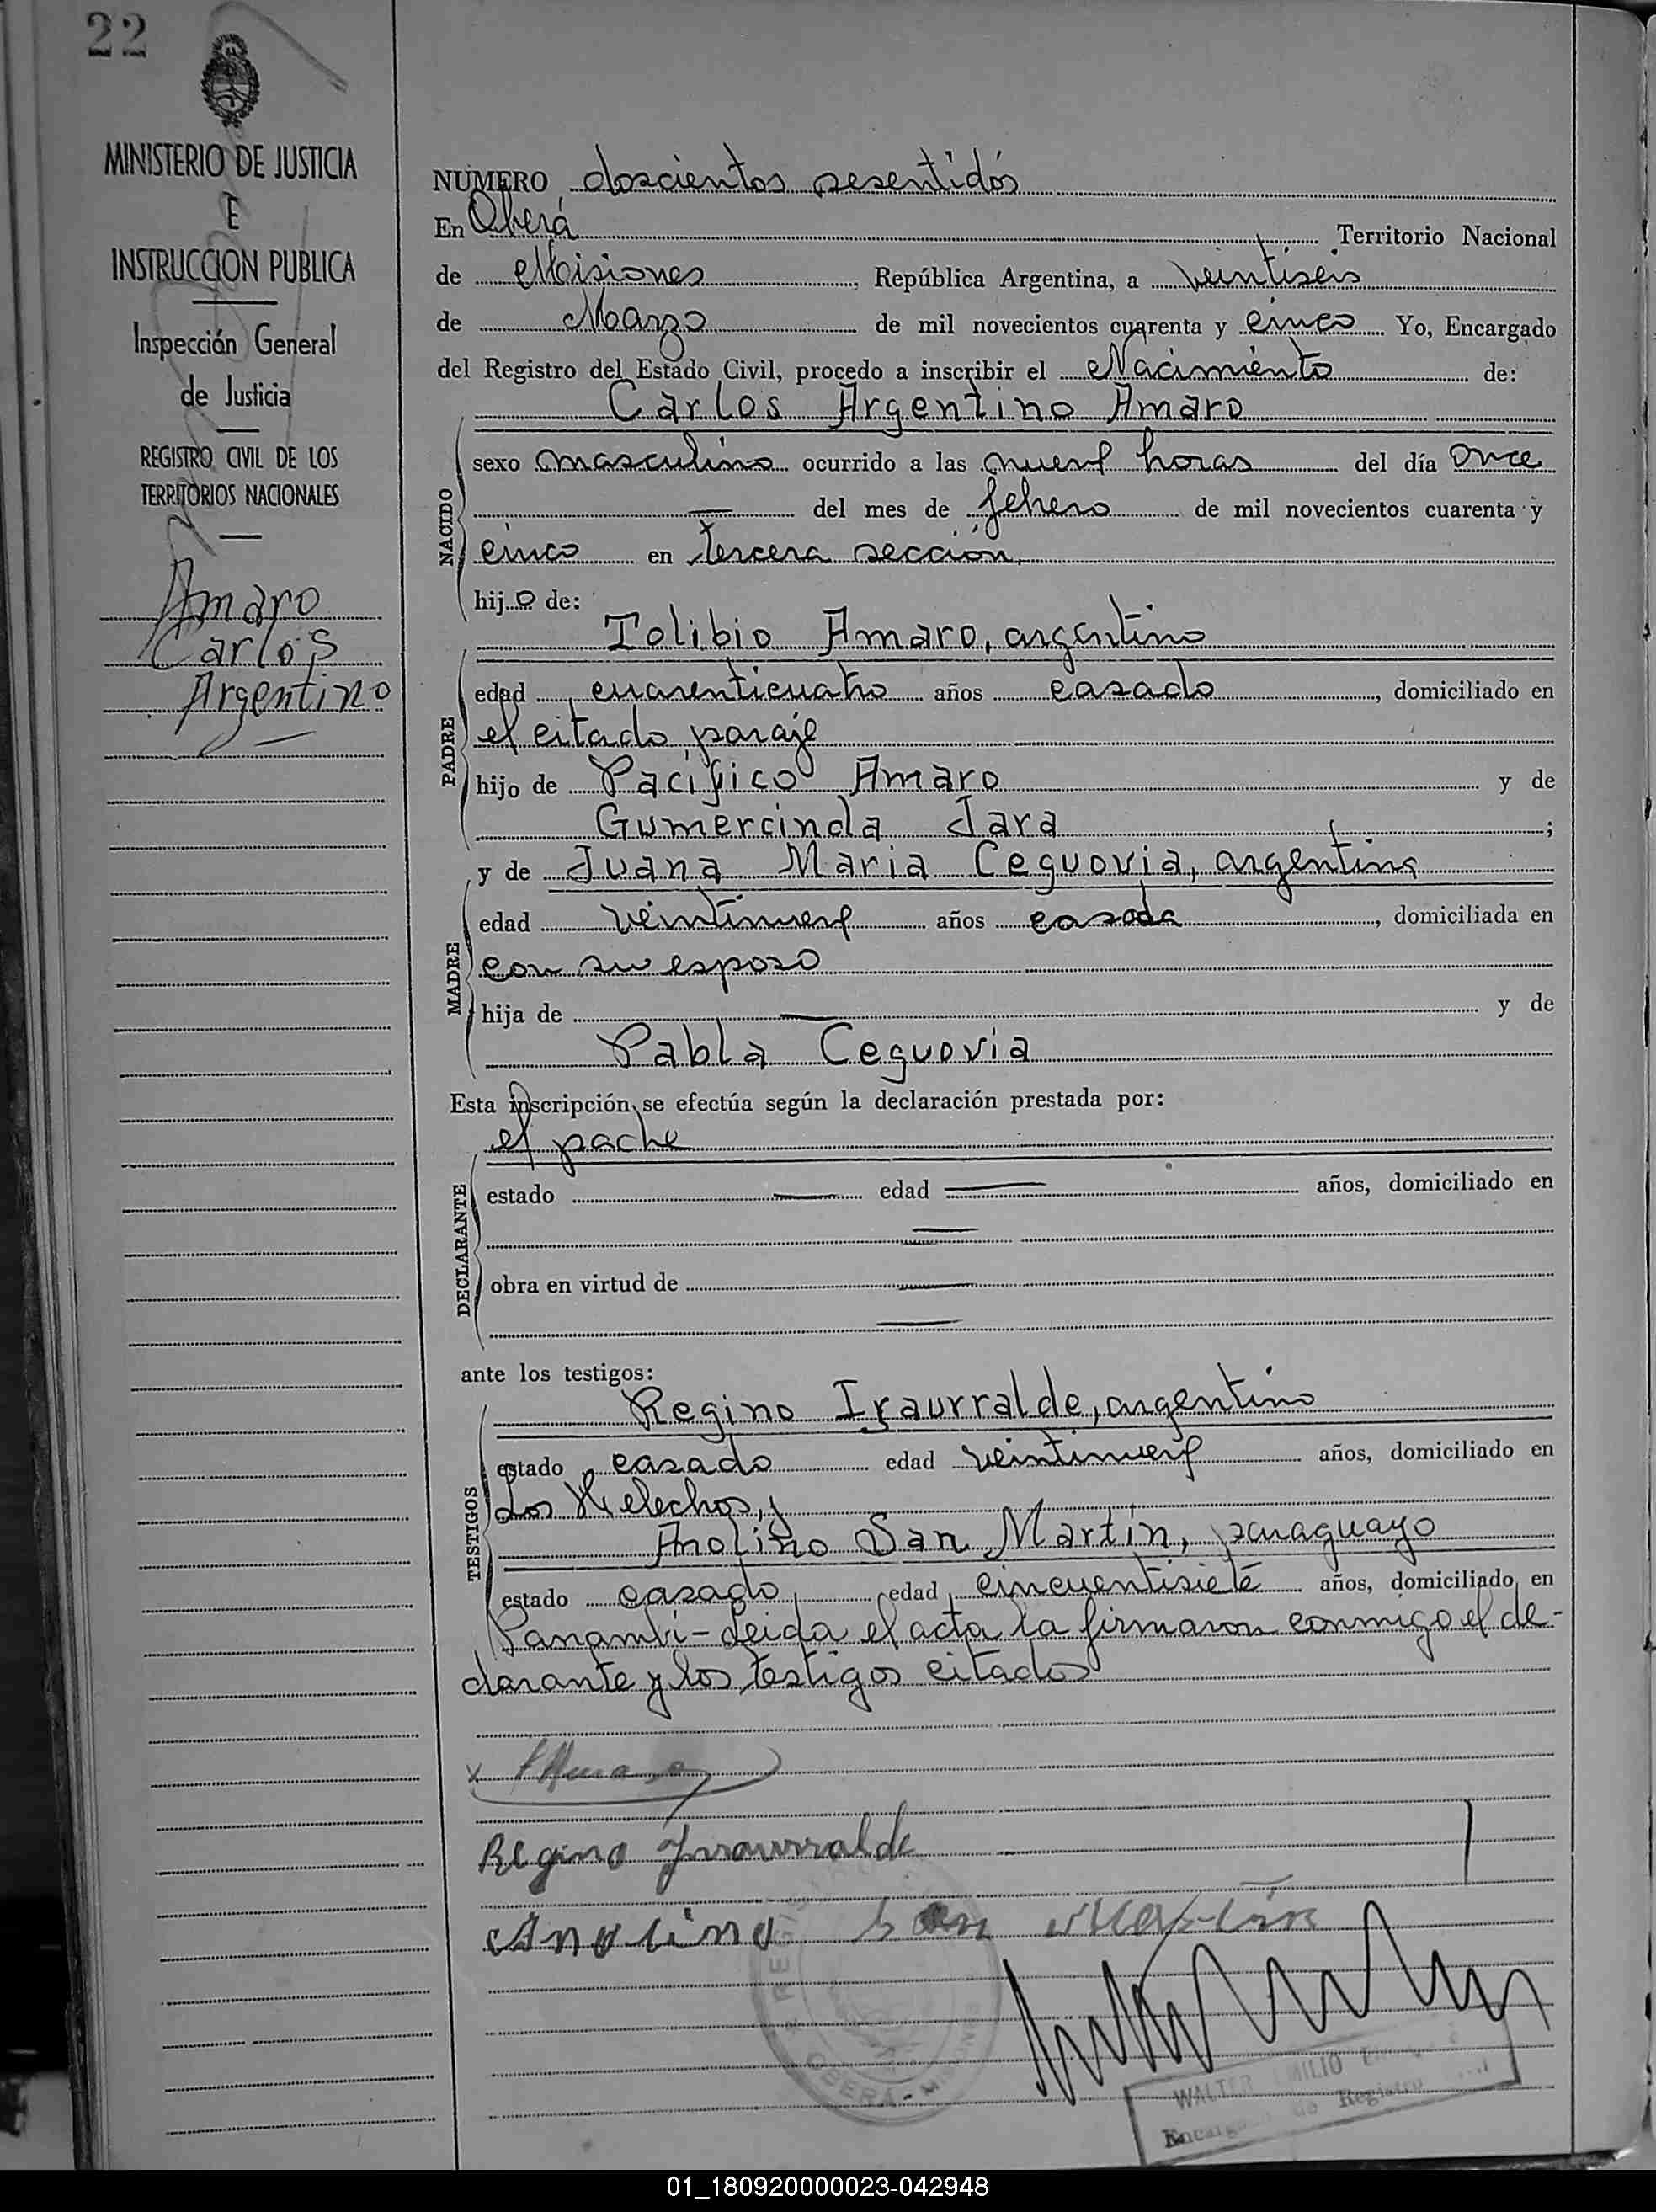 22
MINISTERIO DE JUSTICIA
E
INSTRUCCION PUBLICA
Inspección General
de Justicia
REGISTRO CIVIL DE LOS
TERRITORIOS NACIONALES
Amaro
Carlos
Argentino
NUMERO doscientos sesentidós
En Oberá Territorio Nacional
de Misiones, República Argentina, a veintiseis
de Marzo de mil novecientos cuarenta y cinco Yo, Encargado
del Registro del Estado Civil, procedo a inscribir el Nacimiento de:
Carlos Argentino Amaro
NACIDO
sexo masculino ocurrido a las nueve horas del día once
— del mes de febrero de mil novecientos cuarenta y
cinco en tercera sección
hijo de:
Tolibio Amaro, argentino
PADRE
edad cuarenticuatro años casado, domiciliado en
el citado paraje
hijo de Pacifico Amaro y de
Gumercinda Jara;
y de Juana Maria Ceguovia, argentina
MADRE
edad veintinueve años casada, domiciliada en
con su esposo
hija de — y de
Pabla Ceguovia
Esta inscripción se efectúa según la declaración prestada por:
el padre
DECLARANTE
estado — edad — años, domiciliado en
—
obra en virtud de —
—
ante los testigos:
TESTIGOS
Regino Iraurralde, argentino
estado casado edad veintinueve años, domiciliado en
Los Helechos, y
Anolino San Martín, paraguayo
estado casado edad cincuentisiete años, domiciliado en
Panambi - Leida el acta la firmaron conmigo el de-
clarante y los testigos citados
x Amaro
Regino Irraurralde
Anolino San Martin
OBERÁ - MISIONES
WALTER EMILIO
Encargado de Registro Civil
01_180920000023-042948